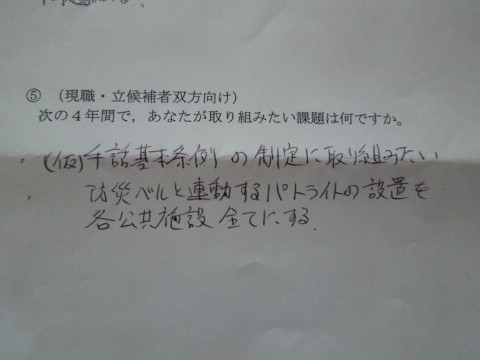 ⑤ (現職・立候補者双方向け)
次の4年間で,あなたが取り組みたい課題は何ですか。
・(仮)手話基本条例の制定に取り組みたい
・防災ベルと連動するパトライトの設置を
各公共施設全てにする.